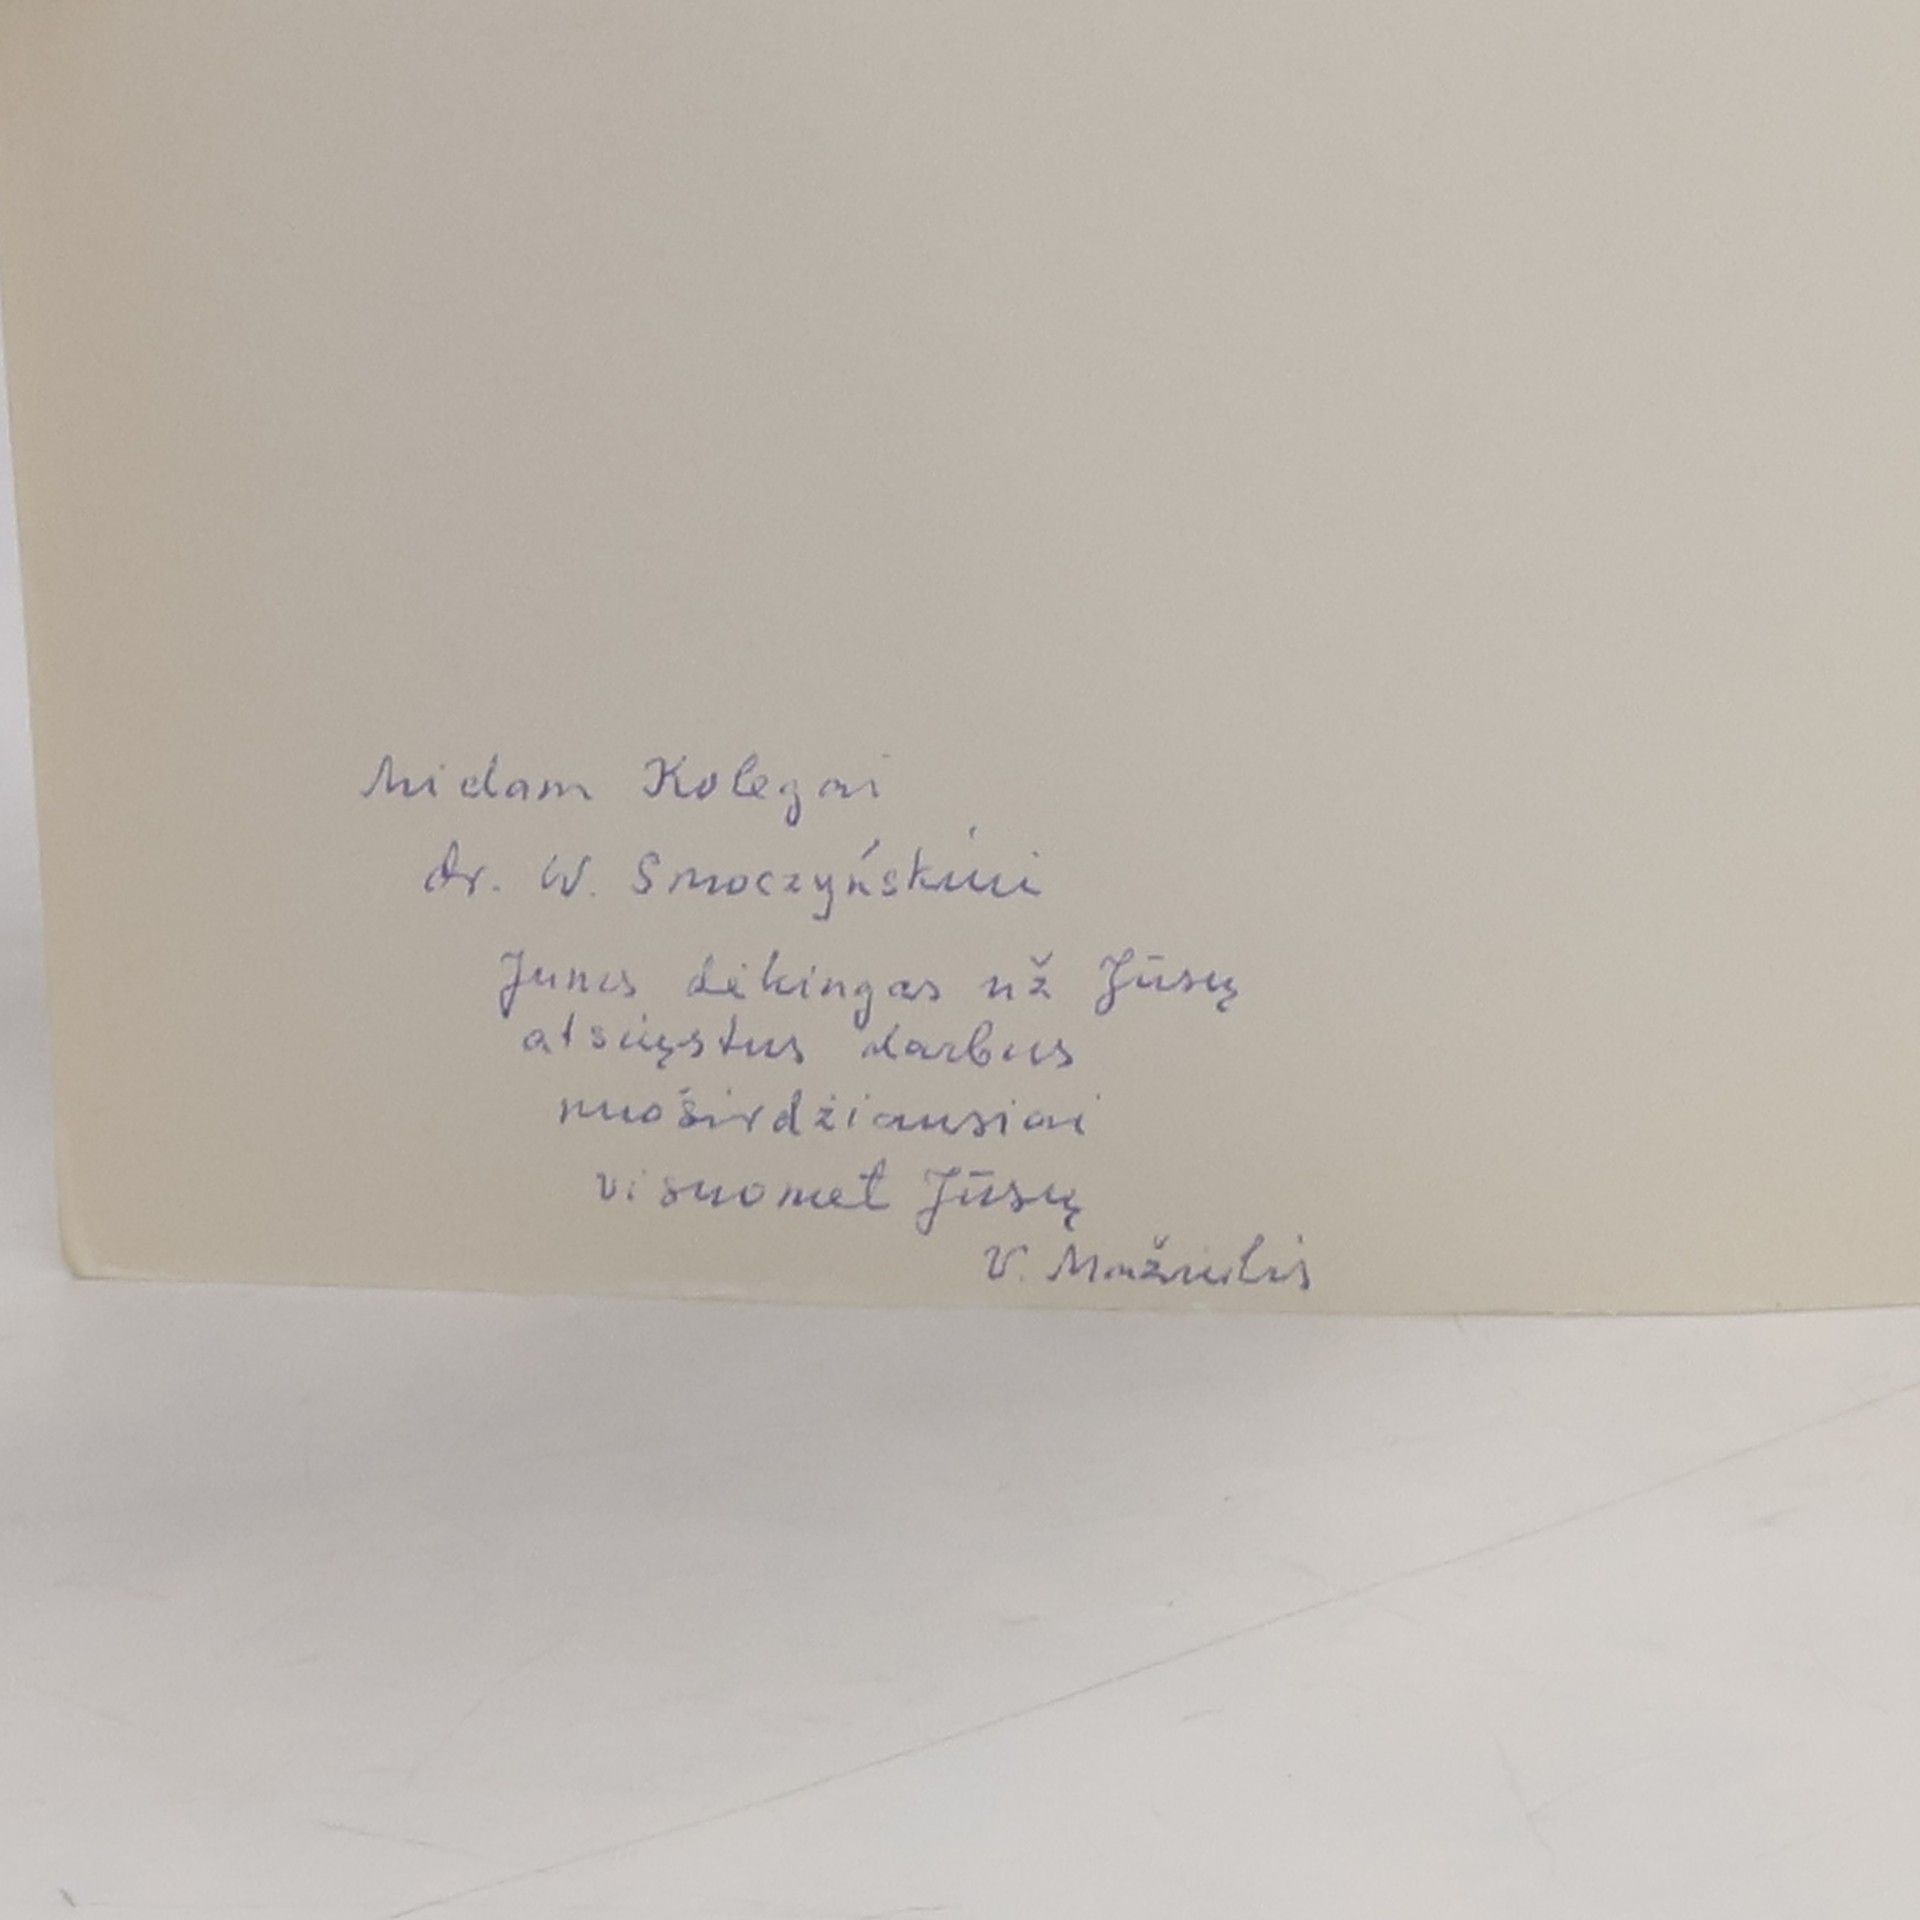 Mielam Kolegai
dr. W. Smoczyńskiui
Jums dėkingas už Jūsų
atsiųstus darbus
nuoširdžiausiai
visuomet Jūsų
V. Mažiulis